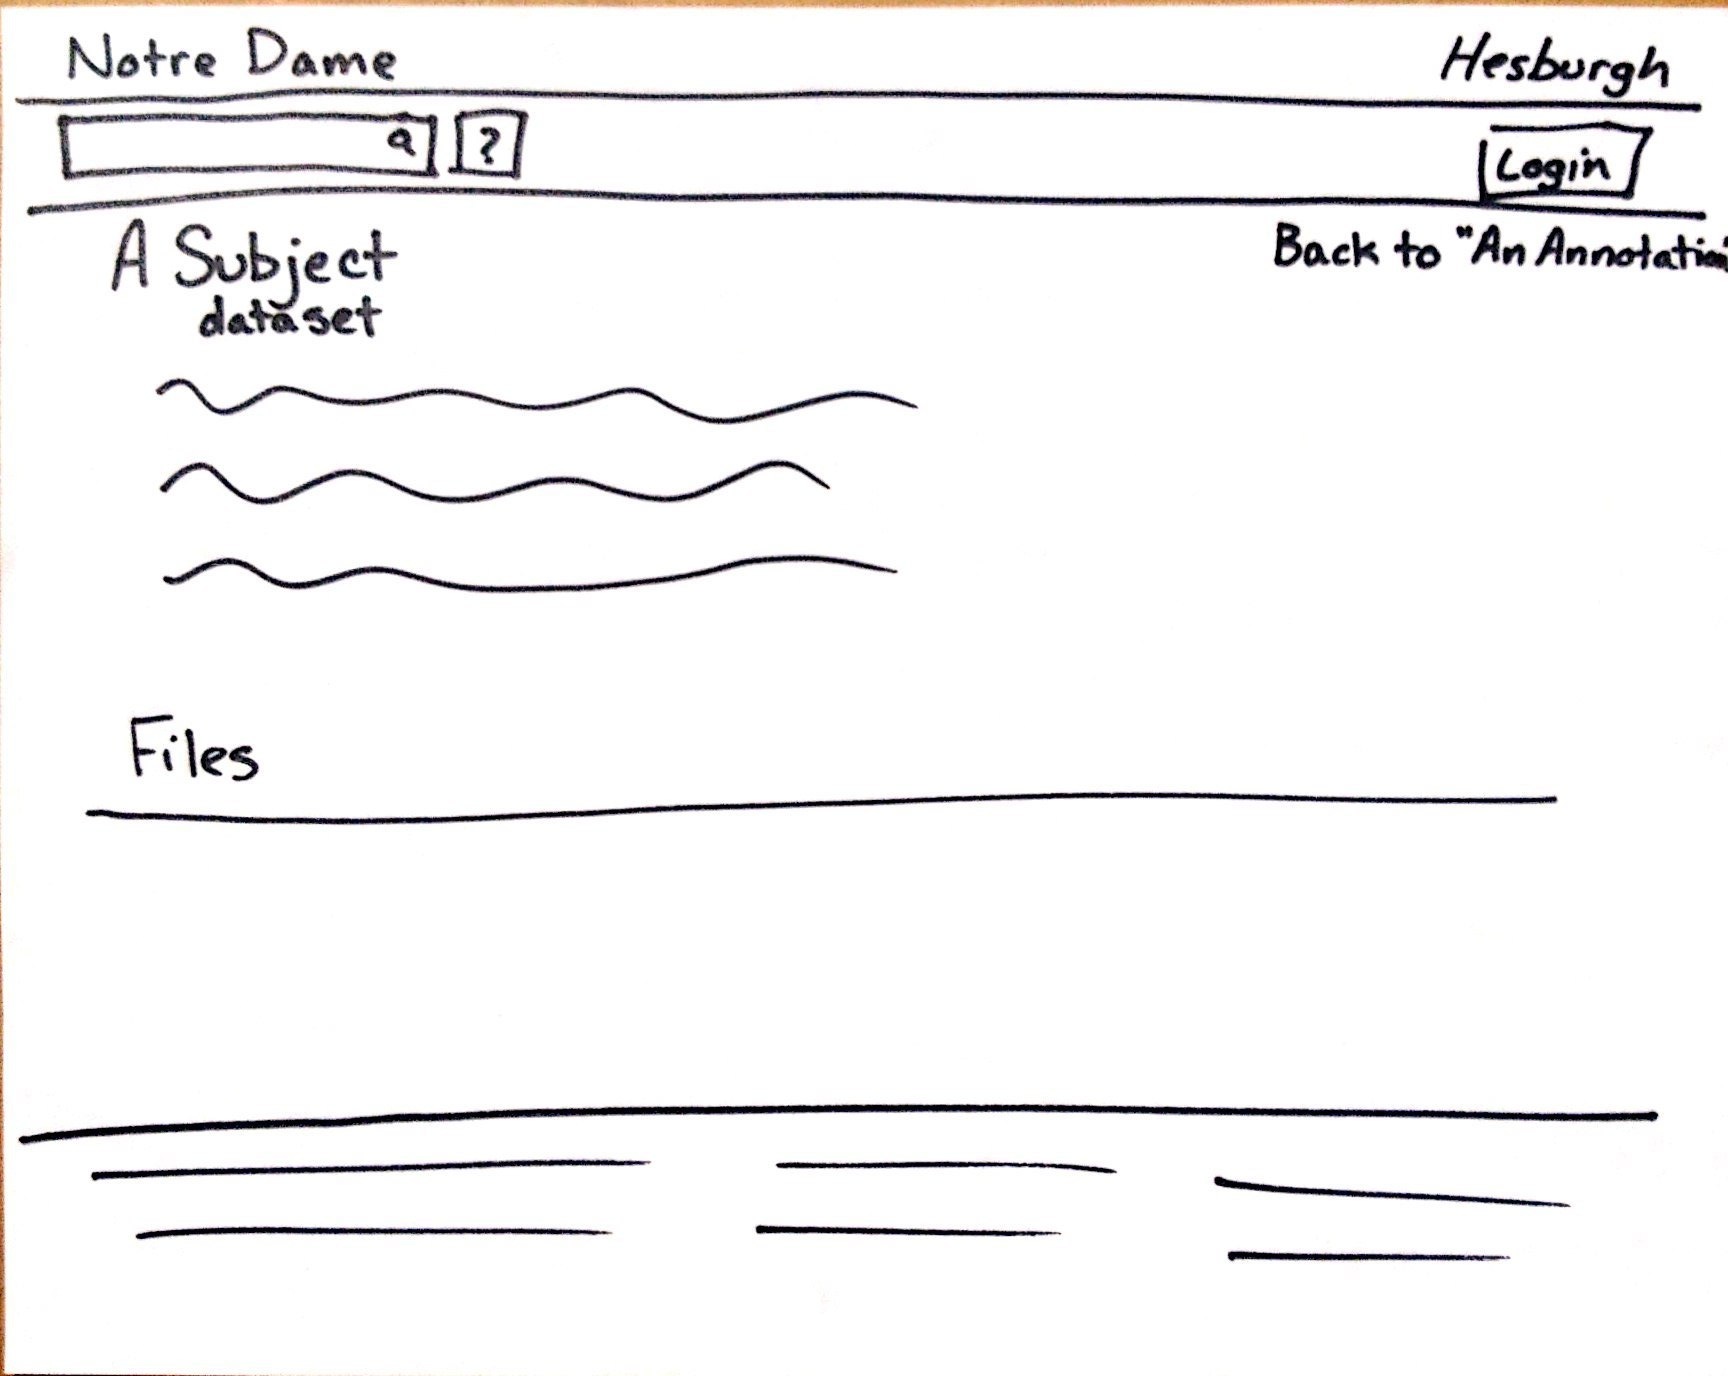 Notre Dame
Hesburgh
?
Login
A Subject
dataset
Back to "An Annotation"
Files